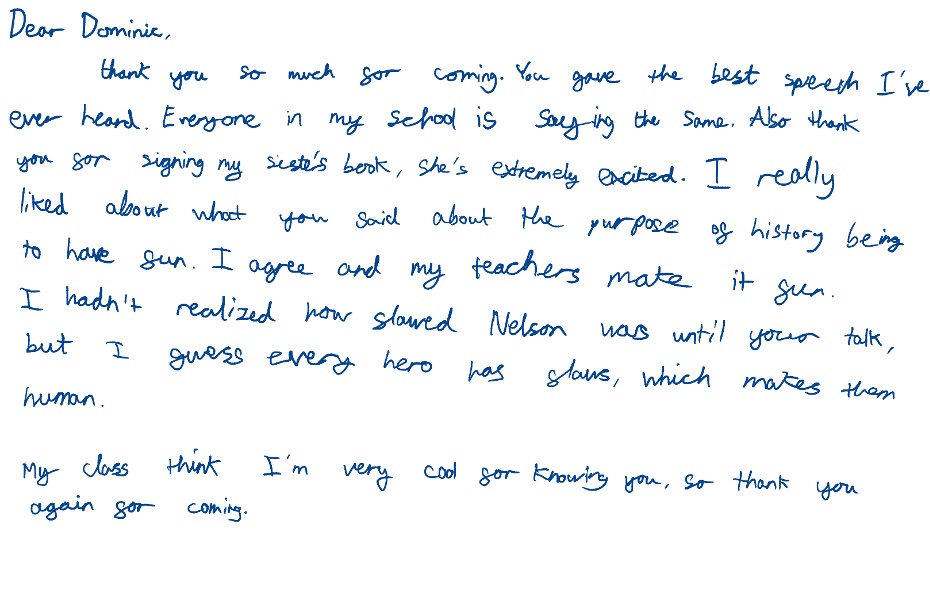 Dear Dominic,
thank you so much for coming. You gave the best speech I've
ever heard. Everyone in my school is saying the same. Also thank
you for signing my sister's book, she's extremely excited. I really
liked about what you said about the purpose of history being
to have fun. I agree and my teachers make it fun.
I hadn't realized how flawed Nelson was until your talk,
but I guess every hero has flaws, which makes them
human.
My class think I'm very cool for knowing you, so thank you
again for coming.